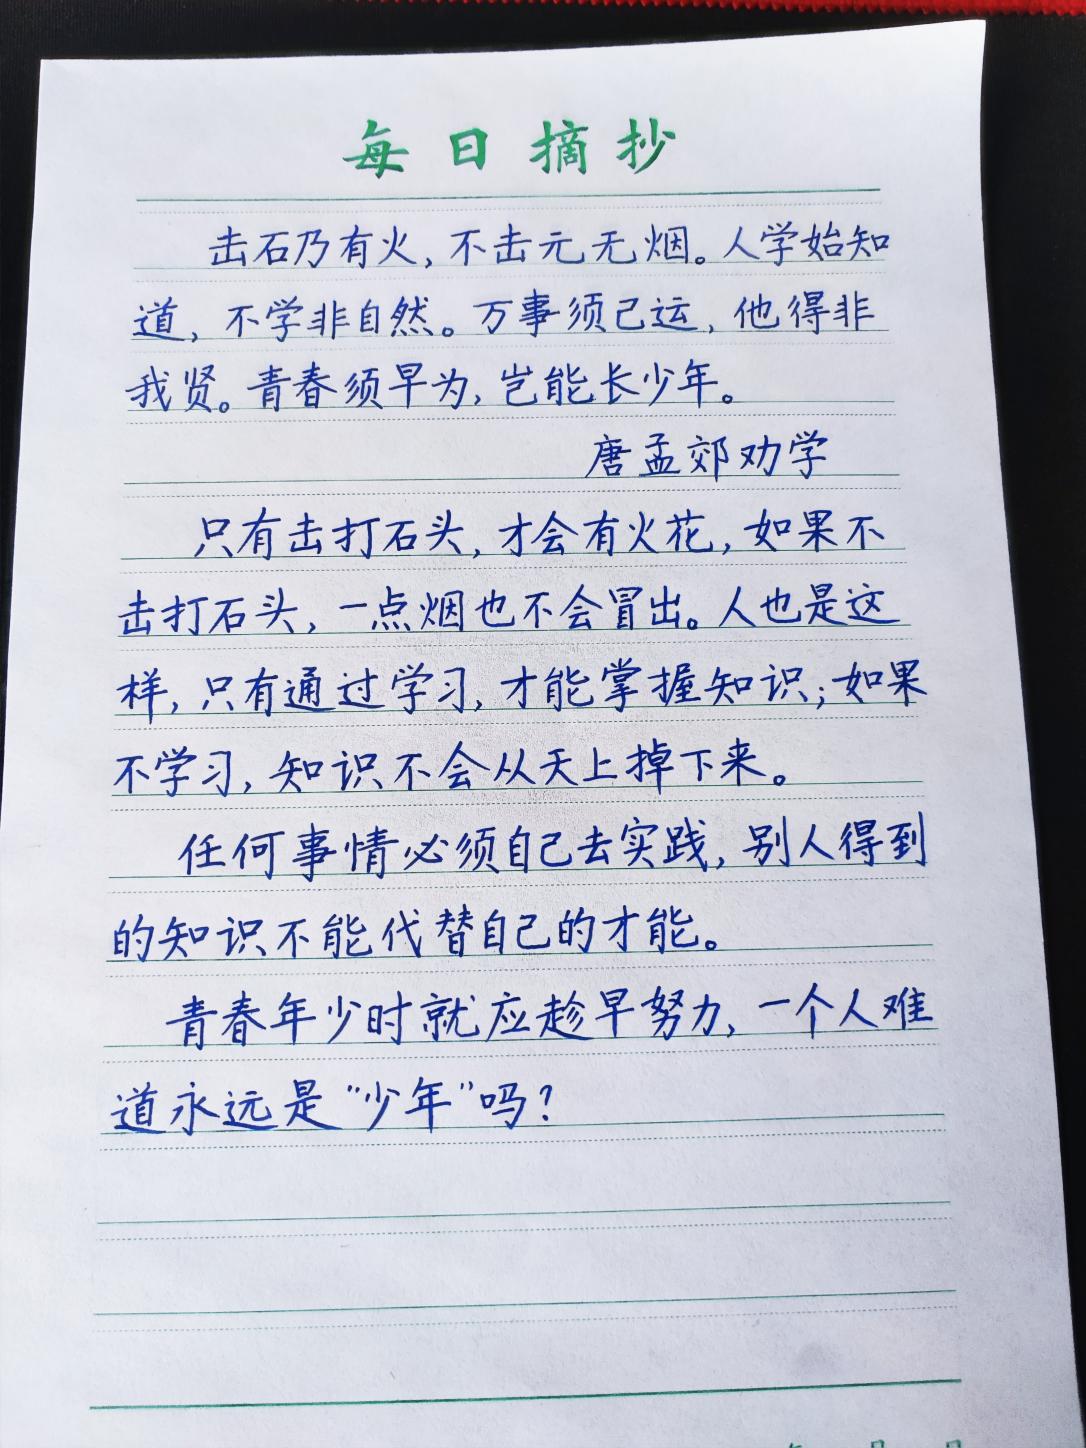 每日摘抄
击石乃有火，不击元无烟。人学始知
道，不学非自然。万事须己运，他得非
我贤。青春须早为，岂能长少年。
唐孟郊劝学
只有击打石头，才会有火花，如果不
击打石头，一点烟也不会冒出。人也是这
样，只有通过学习，才能掌握知识；如果
不学习，知识不会从天上掉下来。
任何事情必须自己去实践，别人得到
的知识不能代替自己的才能。
青春年少时就应趁早努力，一个人难
道永远是“少年”吗？